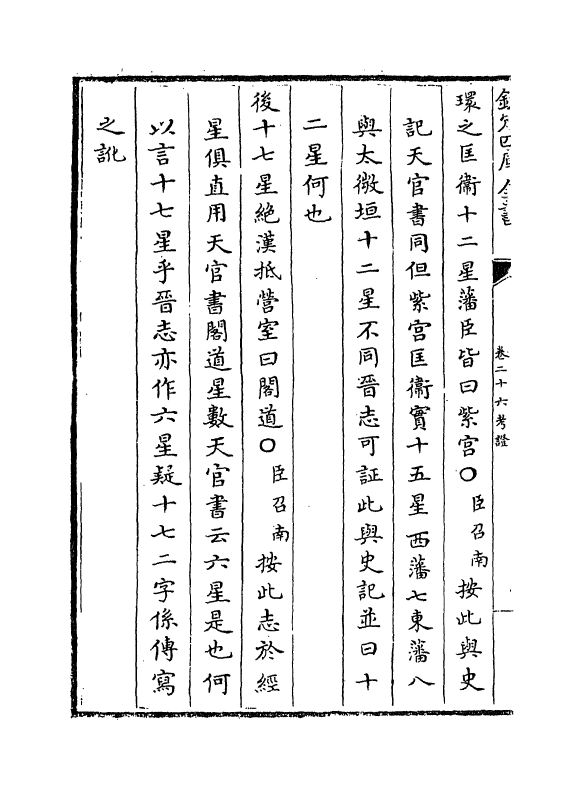 欽定四庫全書
卷二十六考證
環之匡衞十二星藩臣皆曰紫宫○臣召南按此與史
記天官書同但紫宫匡衞實十五星西藩七東藩八
與太微垣十二星不同晉志可証此與史記並曰十
二星何也
後十七星絶漢抵營室曰閣道○臣召南按此志於經
星俱直用天官書閣道星數天官書云六星是也何
以言十七星乎晉志亦作六星疑十七二字係傳寫
之訛